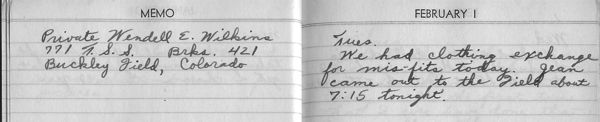 MEMO
Private Wendell E. Wilkins
771 T. S. S. Brks. 421
Buckley Field, Colorado
FEBRUARY 1
Tues.
We had clothing exchange
for mis-fits today. Jean
came out to the Field about
7:15 tonight.